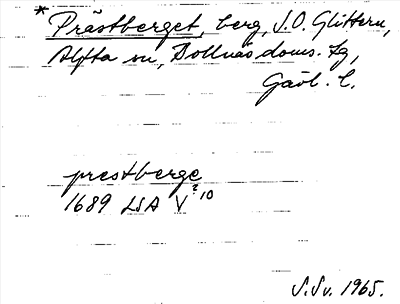 * Prästberget, berg, S.O. Glottern,
Alfta sn, Bollnäs doms. tg,
Gävl. l.
prestberge
1689 LSA V² 10
S.Sv. 1965.